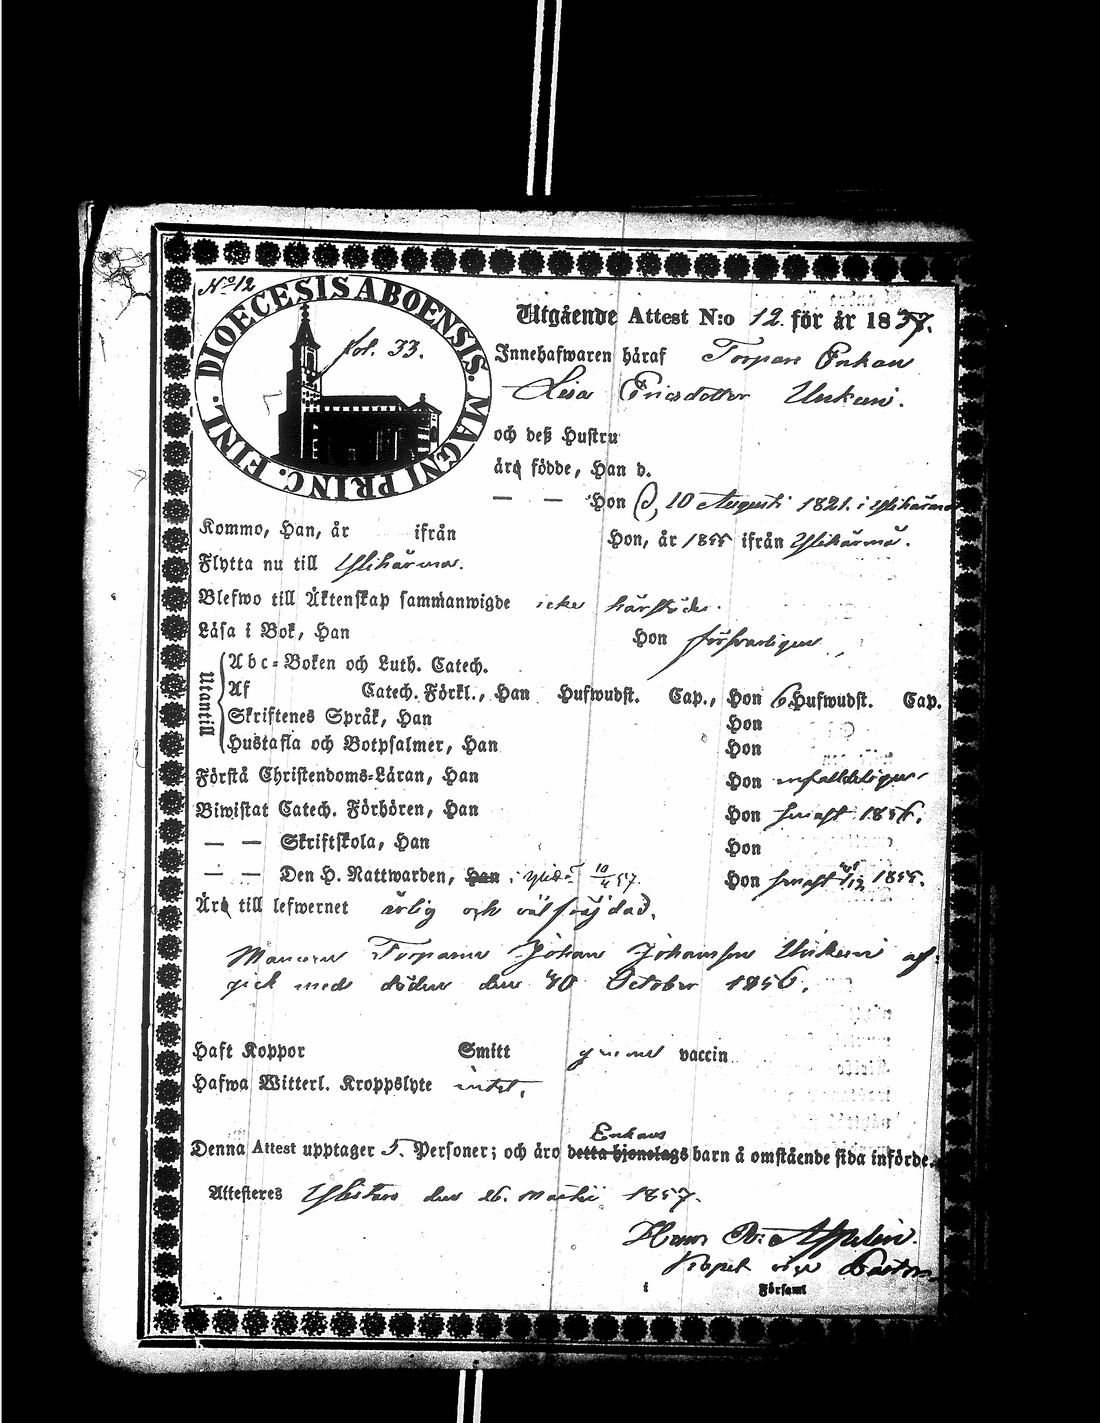 No 12
DIOECESIS ABOENSIS. MAGNI PRINC. FINL.
fol. 33.
Utgående Attest N:o 12. för år 1857.
Innehafwaren häraf Torpare Enkan
Lisa Ericsdotter Unkuri.
och deß Hustru
äro födde, Han d.
— — Hon d. 10 Augusti 1821. i Ylihärmä
Kommo, Han, år ifrån Hon, år 1855 ifrån Ylihärmä.
Flytta nu till Ylihärmä.
Blefwo till Äktenskap sammanwigde icke härstädes.
Läsa i Bok, Han Hon försvarligen
Utantill
Abc-Boken och Luth. Catech.
Af Catech. Förkl., Han Hufwudst. Cap., Hon 6 Hufwudst. Cap.
Skriftenes Språk, Han Hon
Hustafla och Botpsalmer, Han Hon
Förstå Christendoms-Läran, Han Hon enfaldeligen
Biwistat Catech. Förhören, Han Hon senast 1856.
— — Skriftskola, Han Hon
— — Den H. Nattwarden, Han 10/4 57. Hon senast 1855.
Äro till lefwernet ärlig och väl frejdad.
Mannen Torparen Johan Johansson Unkuri af-
gick med döden den 30 October 1856.
Haft Koppor Smitt genom vaccin
Hafwa Witterl. Kroppslyte intet.
Enkans
Denna Attest upptager 5. Personer; och äro detta hjonelags barn å omstående sida införde.
Attesteras Ylistaro den 26. Martii 1857.
Appelin.
Kapel. Pastor
i Församl